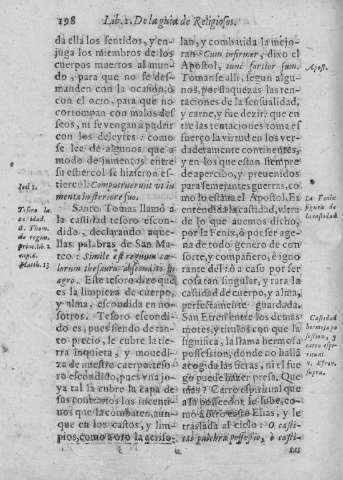 198 Lib. 2. De la guia de Religiosos.
da ella los sentidos, y en-
juga los miembros de los
cuerpos muertos al mun-
do, para que no se des-
manden con la ocasiõ, o
con el ocio, para que no
cortompan con malos des
seos, ni se vengan a pudrir
con los deleytes: como
se lee de algunos que a
modo de jumentos entre
su estiercol se hizieron es-
tiercol: Computruerunt vt iu
menta in stercore suo.
Santo Tomas llamò a
la castidad tesoro escon-
dido, declarando aque-
llas palabras de San Ma-
teo: Simile est regnum cæ-
lorum thesauro abscondito in
agro. Este tesoro dize que
es la limpieza de cuerpo,
y alma, escondida en no-
sotros. Tesoro escondi-
do es, pues siendo de tan-
to precio, le cubre la tie-
rra inquieta, y mouedi-
za de nuestro cuerpo: teso
ro escondido, pues vna jo-
ya tal la cubre la capa de
sus contrarios los incenti-
uos que la combaten, aun-
que en los castos, y lim-
pios, como a oro la acriso-
Ioel 1.
Tesoro la
castidad.
d. Thom.
de regim.
princ. lib. 2
cap. 4.
Matth. 13
lan, y combatida la mejo-
ran: Cum infirmor, dixo el
Apostol, tunc fortior sum.
Tomanse alli, segun algu-
nos, por flaquezas las ten-
taciones de la sensualidad,
y carne, y fue dezir: que en
tre las tentaciones toma es
fuerço la virtud en los ver-
daderamente continentes,
y en los que estan siempre
de apercibo, y preuenidos
para semejantes guerras, co
mo lo estaua el Apostol. Es
entendida la castidad, demas
de lo que auemos dicho,
por la Fenix, ò por ser age-
na de todo genero de con-
sorte, y compañero, è igno-
rante del: ò a caso por ser
cosa tan singular, y rara la
castidad de cuerpo, y alma,
perfectamente guardada.
San Efren entre los demas
motes, y titulos con que la
significa, la llama hermosa
possession, donde no halla
acogida las fieras, ni el fue
go puede hazer presa. Que
mas? Carro espiritual que
a la posseedor le sube, co-
mo a otro Elias, y le
traslada al cielo: O casti-
tas pulchra possessio, ò casti-
tas
Apost.
La Fenix
figura de
la castidad
Castidad
hermosa po
session, y
carro espi-
ritual
S. Efren.
supra.